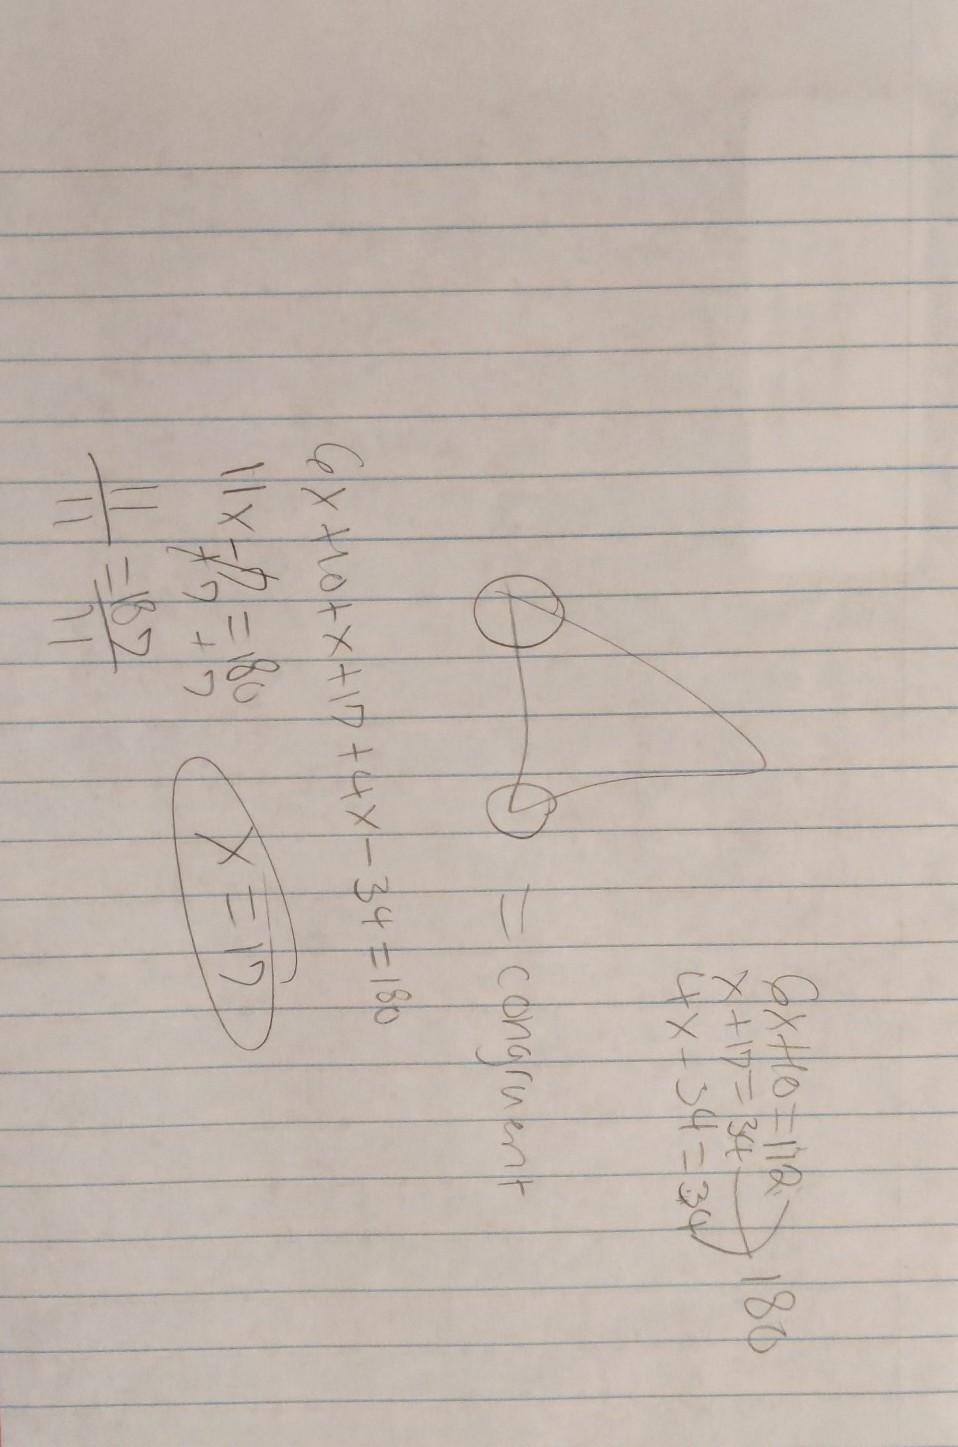 6x+10=112
x+17=34
4x-34=34
180
= congruent
6x+10+x+17+4x-34=180
11x-7=180
+7 +7
11/11 = 187/11
x=17